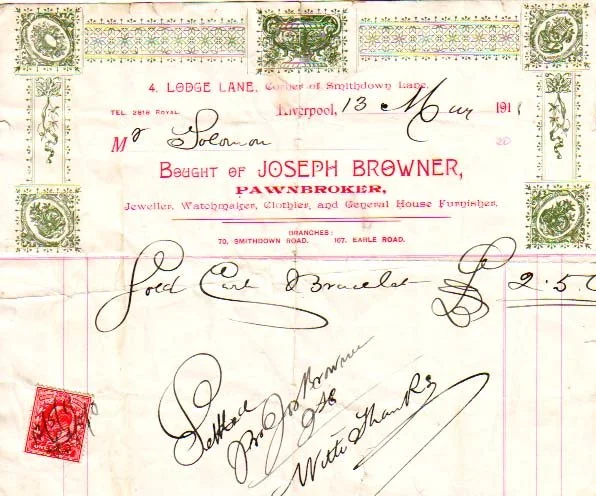 4. LODGE LANE, Corner of Smithdown Lane.
TEL. 2818 ROYAL. Liverpool, 13 May 191
Mr Solomon
BOUGHT OF JOSEPH BROWNER,
PAWNBROKER,
Jeweller, Watchmaker, Clothier, and General House Furnisher.
BRANCHES:
70, SMITHDOWN ROAD. 167, EARLE ROAD.
Gold Curb Bracelet £ 2.5
Settled
pro Jos Browner
With Thanks